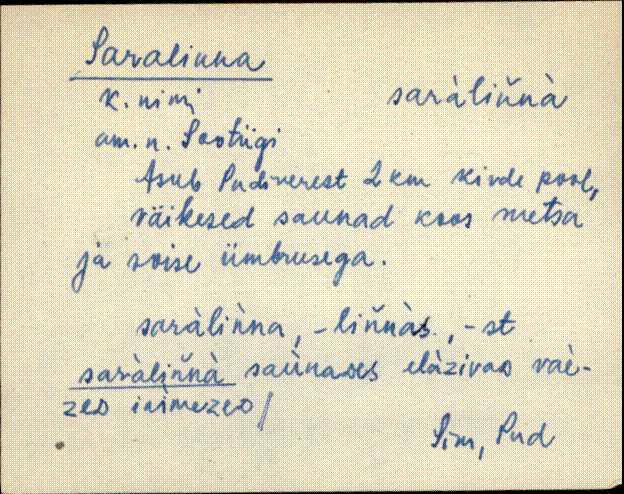 Saralinna
k. nimi saràlin̆nà
am. n. Sootiigi
Asub Pudiverest 2 km kirde pool,
väikesed saunad koos metsa
ja soise ümbrusega.
saràlin̆na, -lin̆nàs, -st
saràlin̆nà saùnases elàzivas vaè-
zes inìmezes/
Sim, Pud